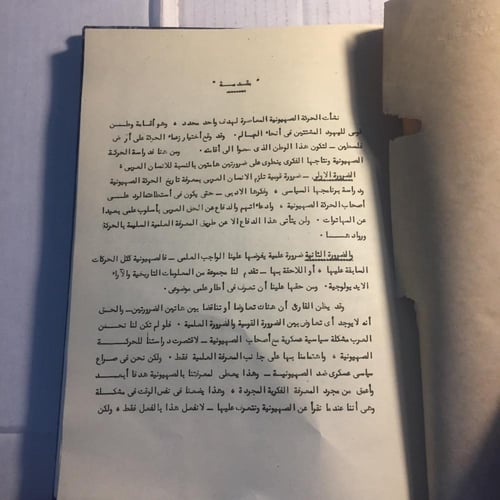 " مقدمة "
نشأت الحركة الصهيونية المعاصرة لهدف واحد محدد ، وهو أقامة وطن
قومى لليهود المشتتين فى أنحاء العالم . وقد وقع أختيار زعماء الحركة على أرض
فلسطين – لتكون هذا الوطن الذى سعوا الى أقامته . ومن هنا فدراسة الحركة
الصهيونية ونتاجها الفكرى ينطوى على ضرورتين هامتين بالنسبة للانسان العربى ،
الضرورة الاولى – ضرورة قومية تلزم الانسان العربى بمعرفة تاريخ الحركة الصهيونية
ودراسة برنامجها السياسى ، وفكرها الادبى – حتى يكون فى أستطاعتها الرد على
أصحاب الحركة الصهيونية ، وادعاءاتهم والدفاع عن الحق العربى بأسلوب علمى بعيدا
عن المهاترات . ولن يتأتى هذا الدفاع الا عن طريق المعرفة العلمية السليمة بالحركة
وروادها .
والضرورة الثانية ضرورة علمية يفرضها علينا الواجب العلمى – فالصهيونية ككل الحركات
السابقة عليها ، أو اللاحقة بها – تقدم لنا مجموعة من المعلومات التاريخية والآراء
الايديولوجية . ومن حقها علينا أن تعرف فى أطار علمى موضوعى .
وقد يظن القارئ أن هناك تعارضا أو تناقضا بين هاتين الضرورتين – والحق
أنه لا يوجد أى تعارض بين الضرورة القومية والضرورة العلمية . فلو لم تكن لنا نحن
العرب مشكلة سياسية عسكرية مع أصحاب الصهيونية – لاقتصرت دراستنا للحركة
الصهيونية ، واهتمامنا بها على جانب المعرفة العلمية فقط . ولكن نحن فى صراع
سياسى عسكرى ضد الصهيونية – وهذا يعطى معرفتنا بالصهيونية هدفا أبعد
وأعمق من مجرد المعرفة الفكرية المجردة ، وهذا يضعنا فى نفس الوقت فى مشكلة
وهى أننا عندما نقرأ عن الصهيونية ونتعرف عليها – لانفعل هذا بالفعل فقط ، ولكن